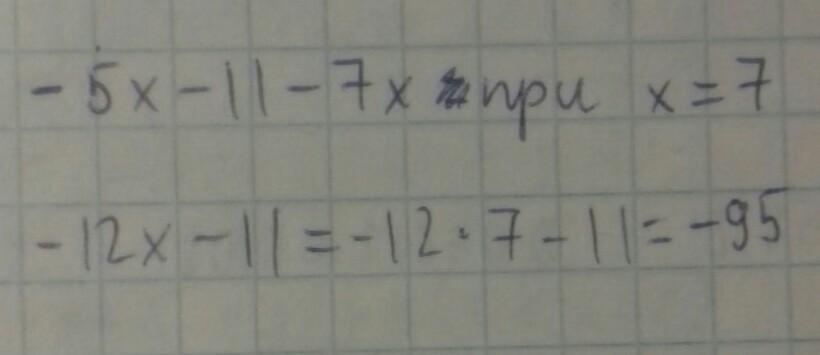 -5x-11-7x при x=7
-12x-11=-12·7-11=-95